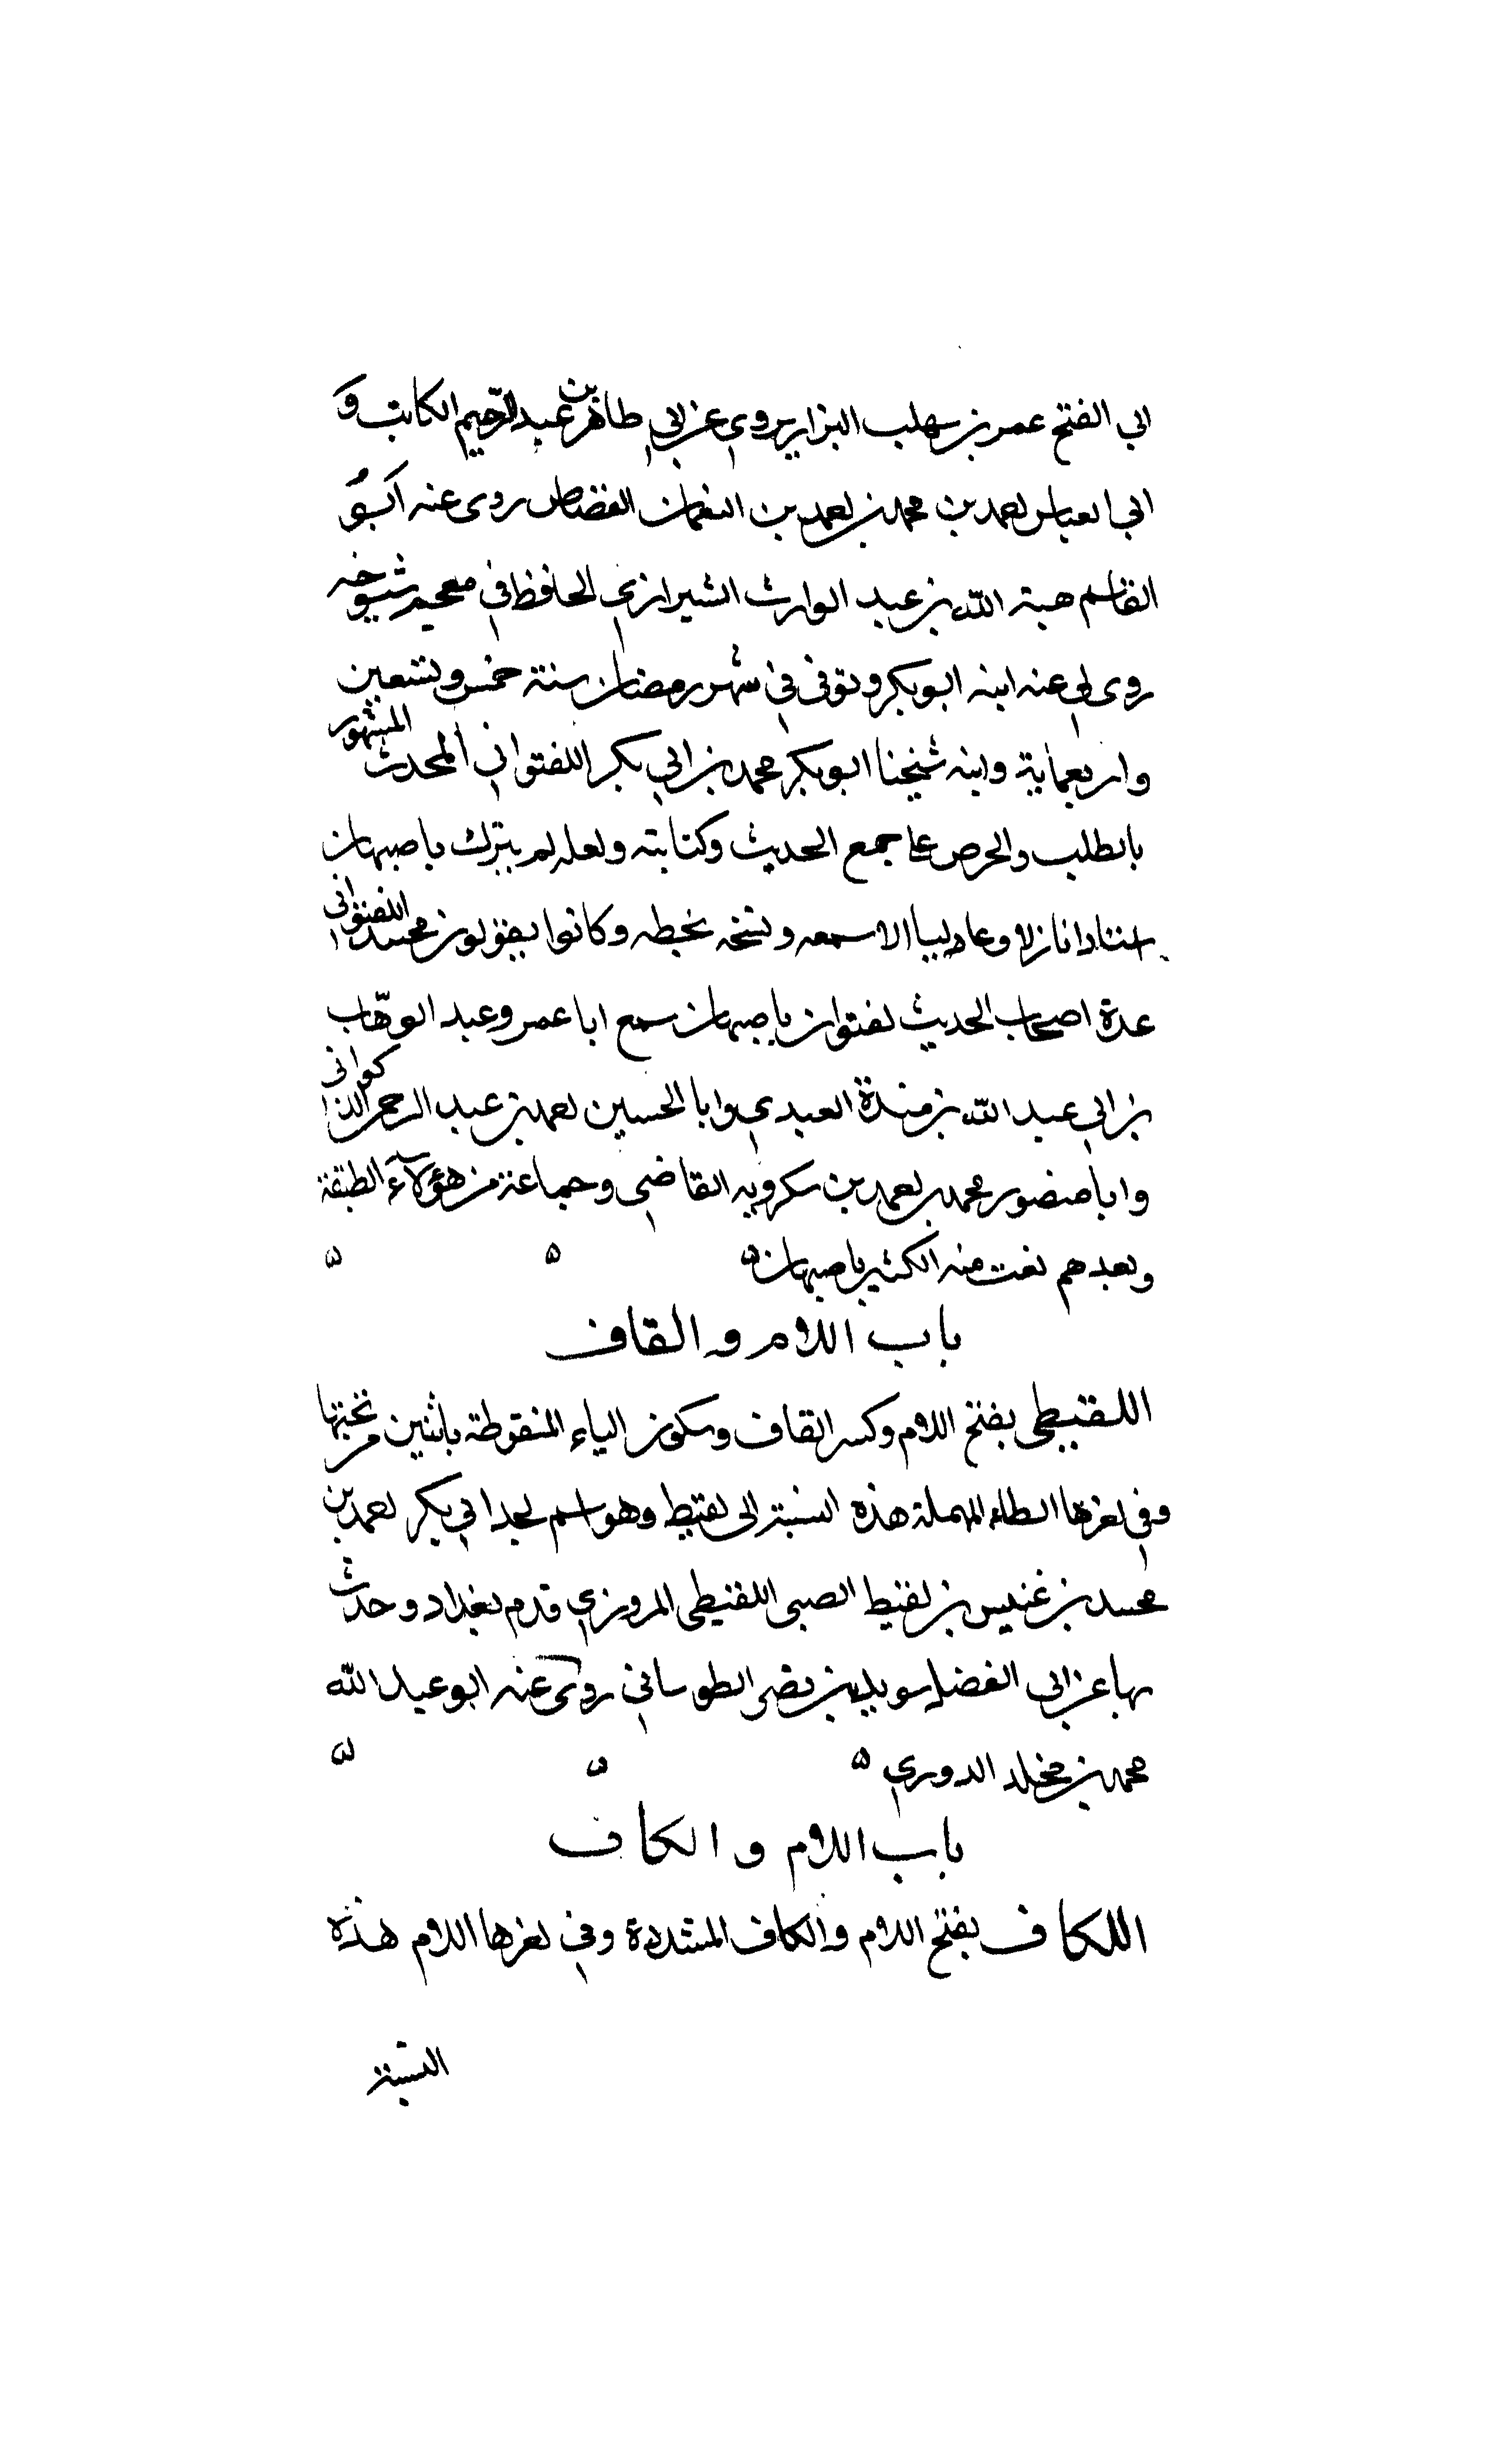 ابي الفتح عمر بن سهلب البزار يروي عن ابي طاهر بن عبد الرحيم الكاتب و
ابي العباس احمد بن محمد بن احمد بن النعمان القصاص روى عنه ابو
القاسم هبة الله بن عبد الوارث الشيرازي الحافظ في معجم شيوخه
روى لي عنه ابنه ابو بكر وتوفي في شهر رمضان سنة خمس وتسعين
واربعماية وابنه شيخنا ابو بكر محمد بن ابي بكر اللفتواني المحدث المشهور
بالطلب والحرص على جمع الحديث وكتابته ولعله لم يترك باصبهان
اسنادا نازلا وعاليا الا سمعه ونسخه بخطه وكانوا يقولون محمد اللفتواني
عدة اصحاب الحديث لفتوان باصبهان سمع ابا عمرو عبد الوهاب
بن ابي عبد الله بن مندة العبدي وابا الحسين احمد بن عبد الرحمن الذكواني
وابا منصور محمد بن احمد بن شكرويه القاضي وجماعة من هؤلاء الطبقة
وبعدهم سمعت منه الكثير باصبهان
باب اللام والقاف
اللقيطي بفتح اللام وكسر القاف وسكون الياء المنقوطة باثنين من تحتها
وفي اخرها الطاء المهملة هذه النسبة الى لقيط وهو اسم لجد ابي بكر احمد بن
محمد بن عنبس بن لقيط الضبي اللقيطي المروزي قدم بغداد وحدث
بها عن ابي الفضل سويد بن نصر الطوساني روى عنه ابو عبد الله
محمد بن مخلد الدوري
باب اللام والكاف
اللكاف بفتح اللام والكاف المشددة وفي اخرها اللام هذه
النسبة